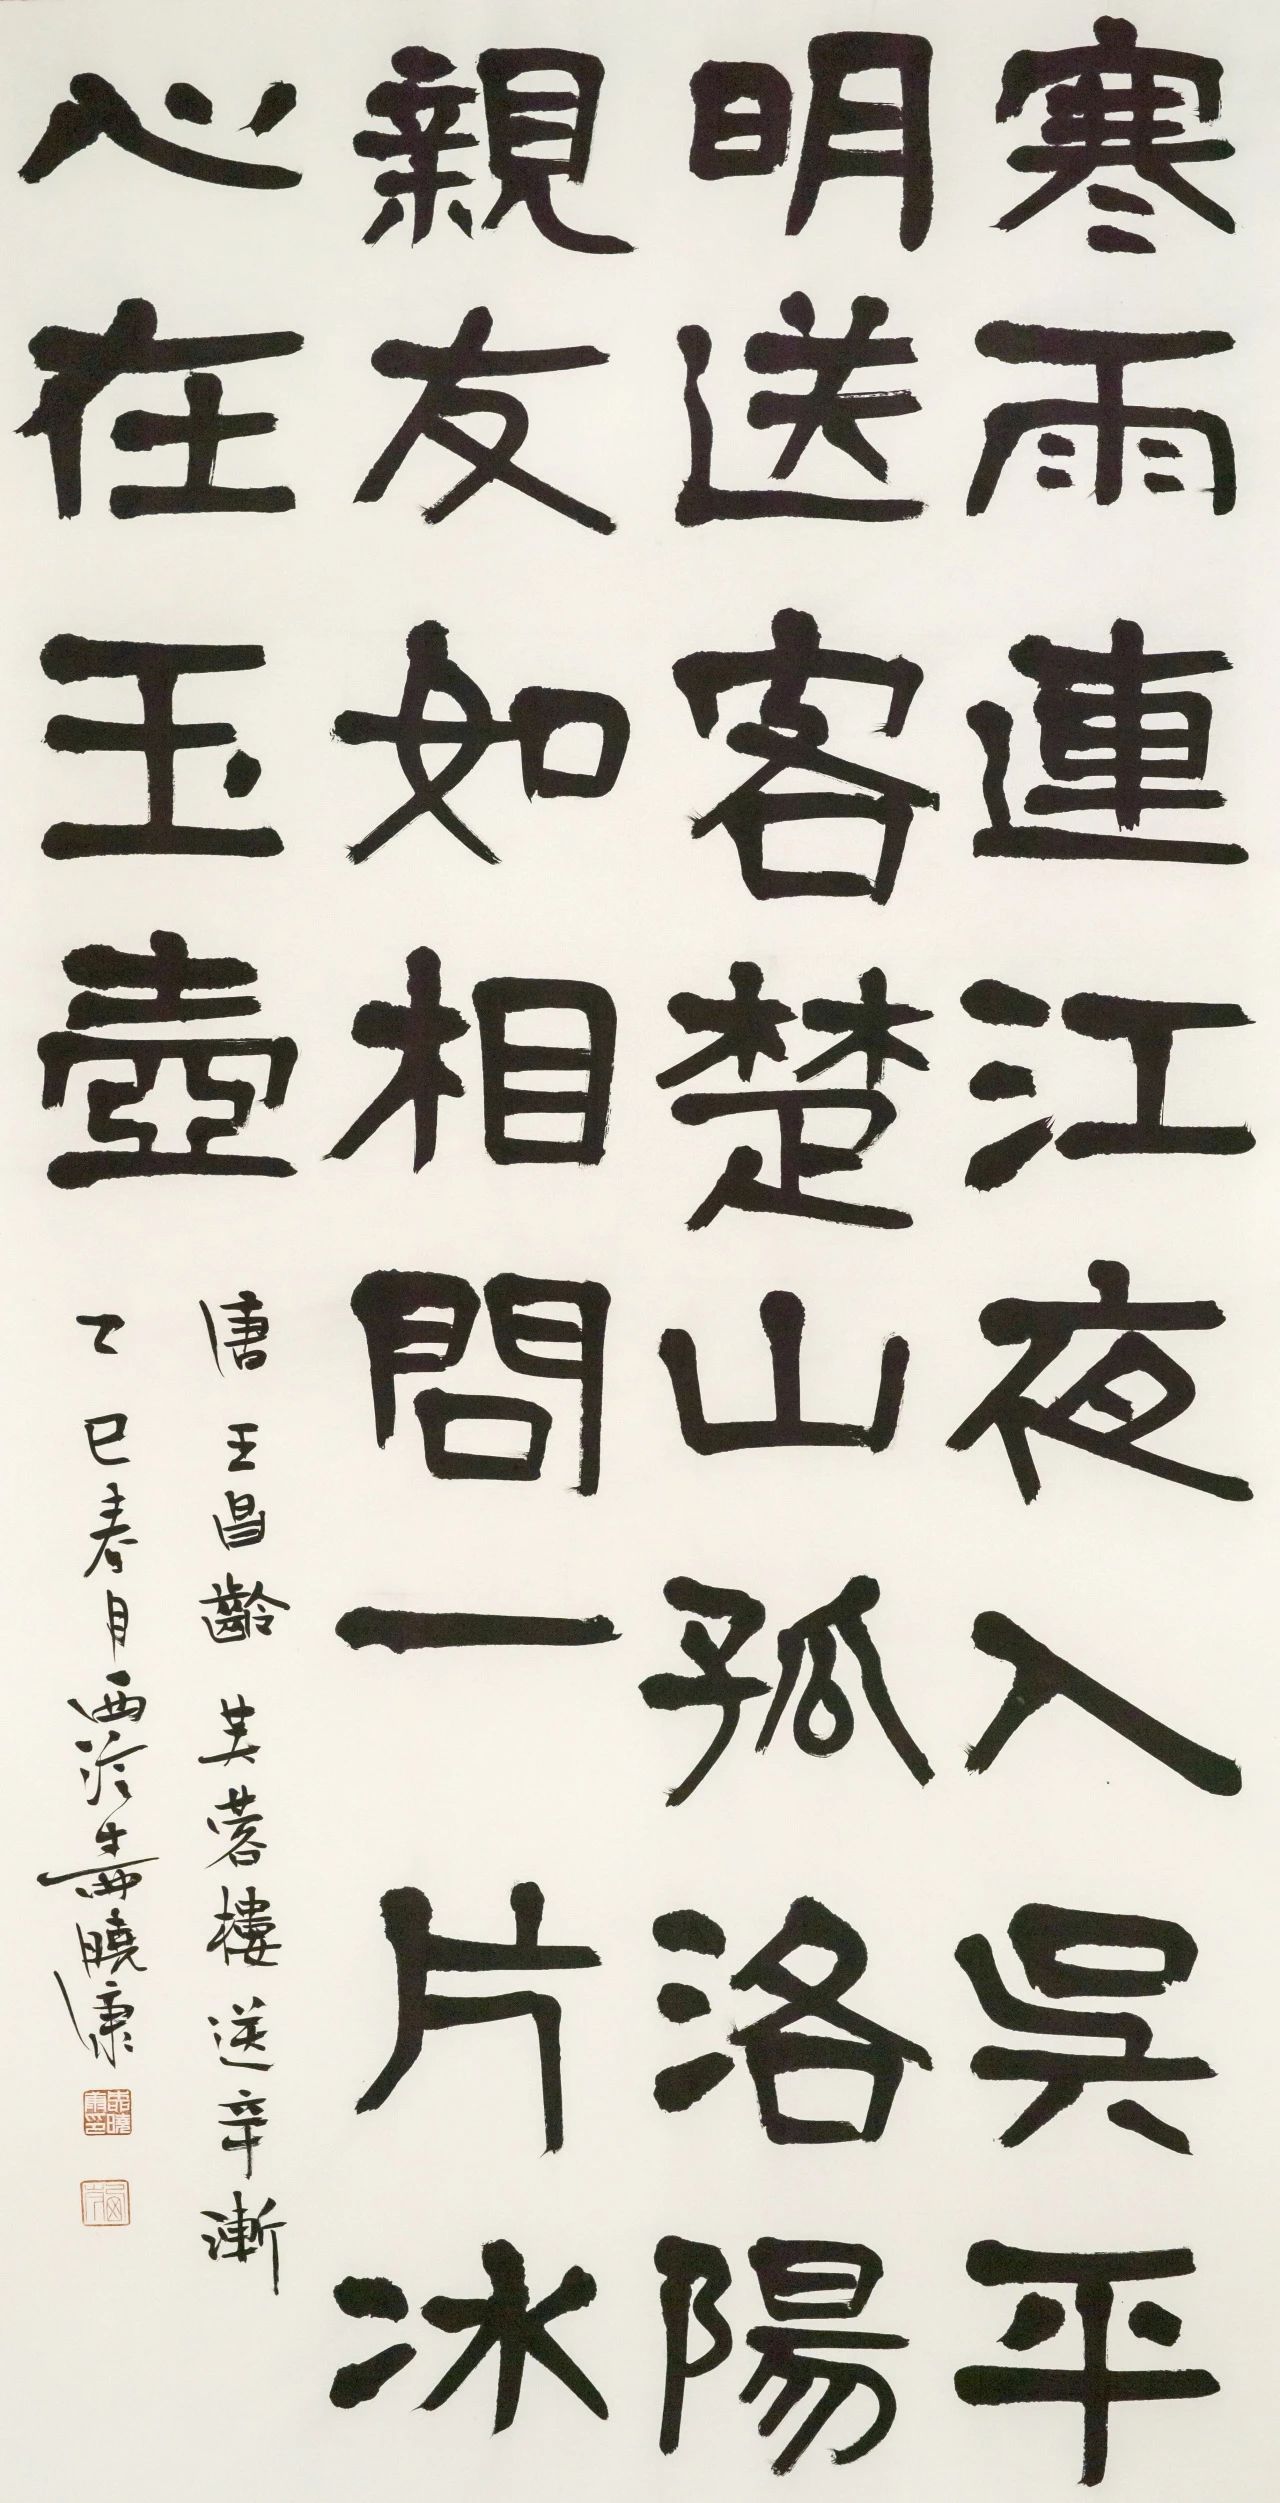 寒雨連江夜入吳平
明送客楚山孤洛陽
親友如相問一片冰
心在玉壺
唐王昌齡芙蓉樓送辛漸
乙巳春月西泠壽曉康